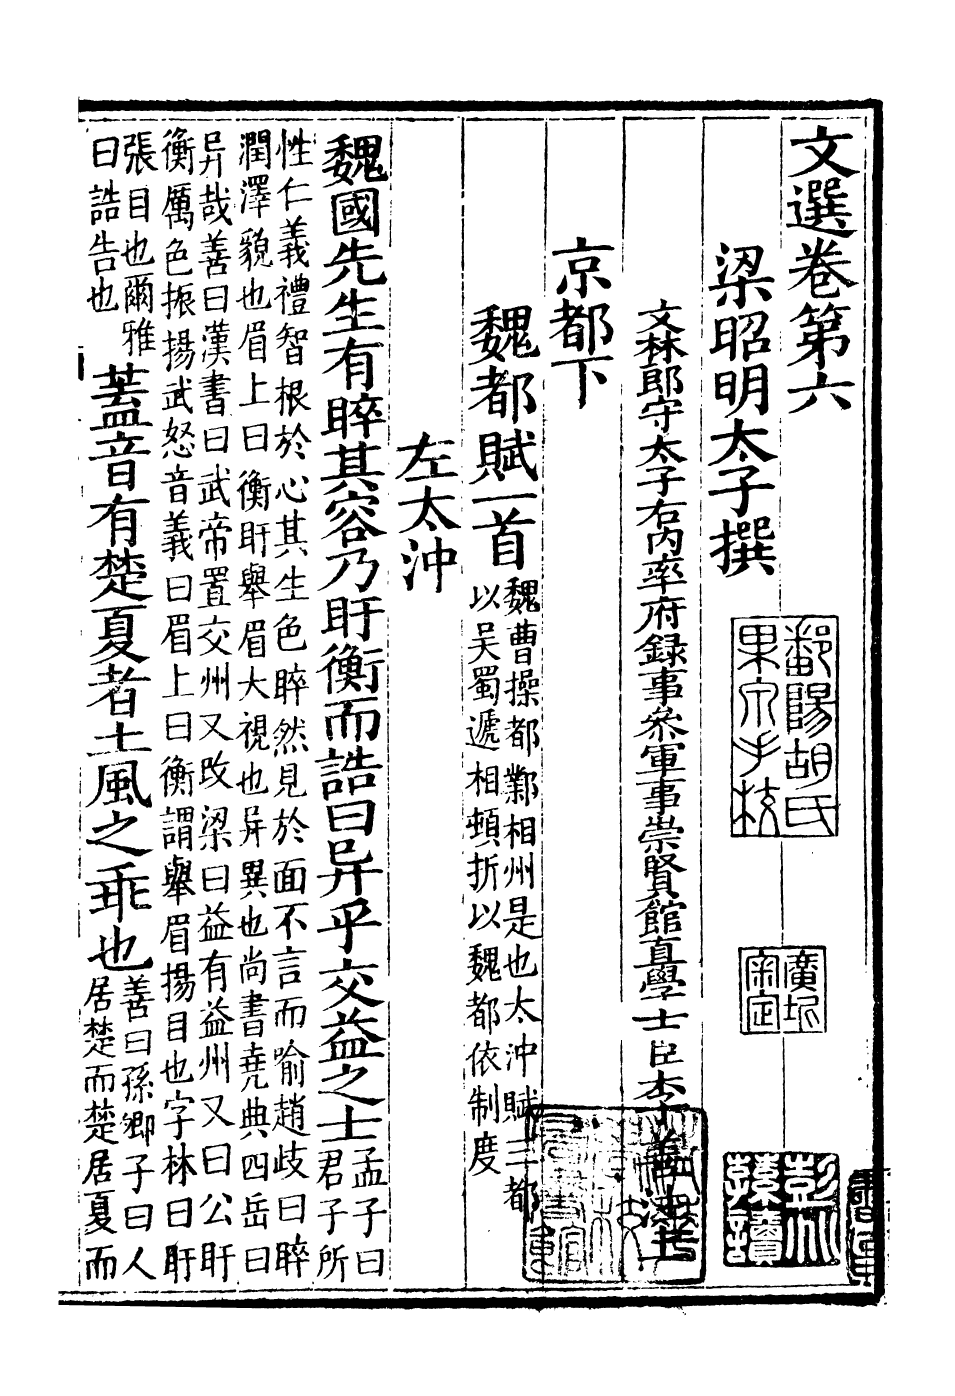 文選卷第六
梁昭明太子撰
鄱陽胡氏
廣圻
審定
文林郎守太子右內率府録事叅軍事崇賢館直學士臣李善注上
京都下
魏都賦一首
魏曹操都鄴相州是也太沖賦三都
以吴蜀遞相頓折以魏都依制度
左太沖
魏國先生有睟其容乃盱衡而誥曰异乎交益之士
孟子曰
君子所
性仁義禮智根於心其生色睟然見於面不言而喻趙歧曰睟
潤澤貌也眉上曰衡盱舉眉大視也异異也尚書堯典四岳曰
异哉善曰漢書曰武帝置交州又改梁曰益有益州又曰公盱
衡厲色振揚武怒音義曰眉上曰衡謂舉眉揚目也字林曰盱
張目也爾雅
曰誥告也
蓋音有楚夏者土風之乖也
善曰孫卿子曰人
居楚而楚居夏而